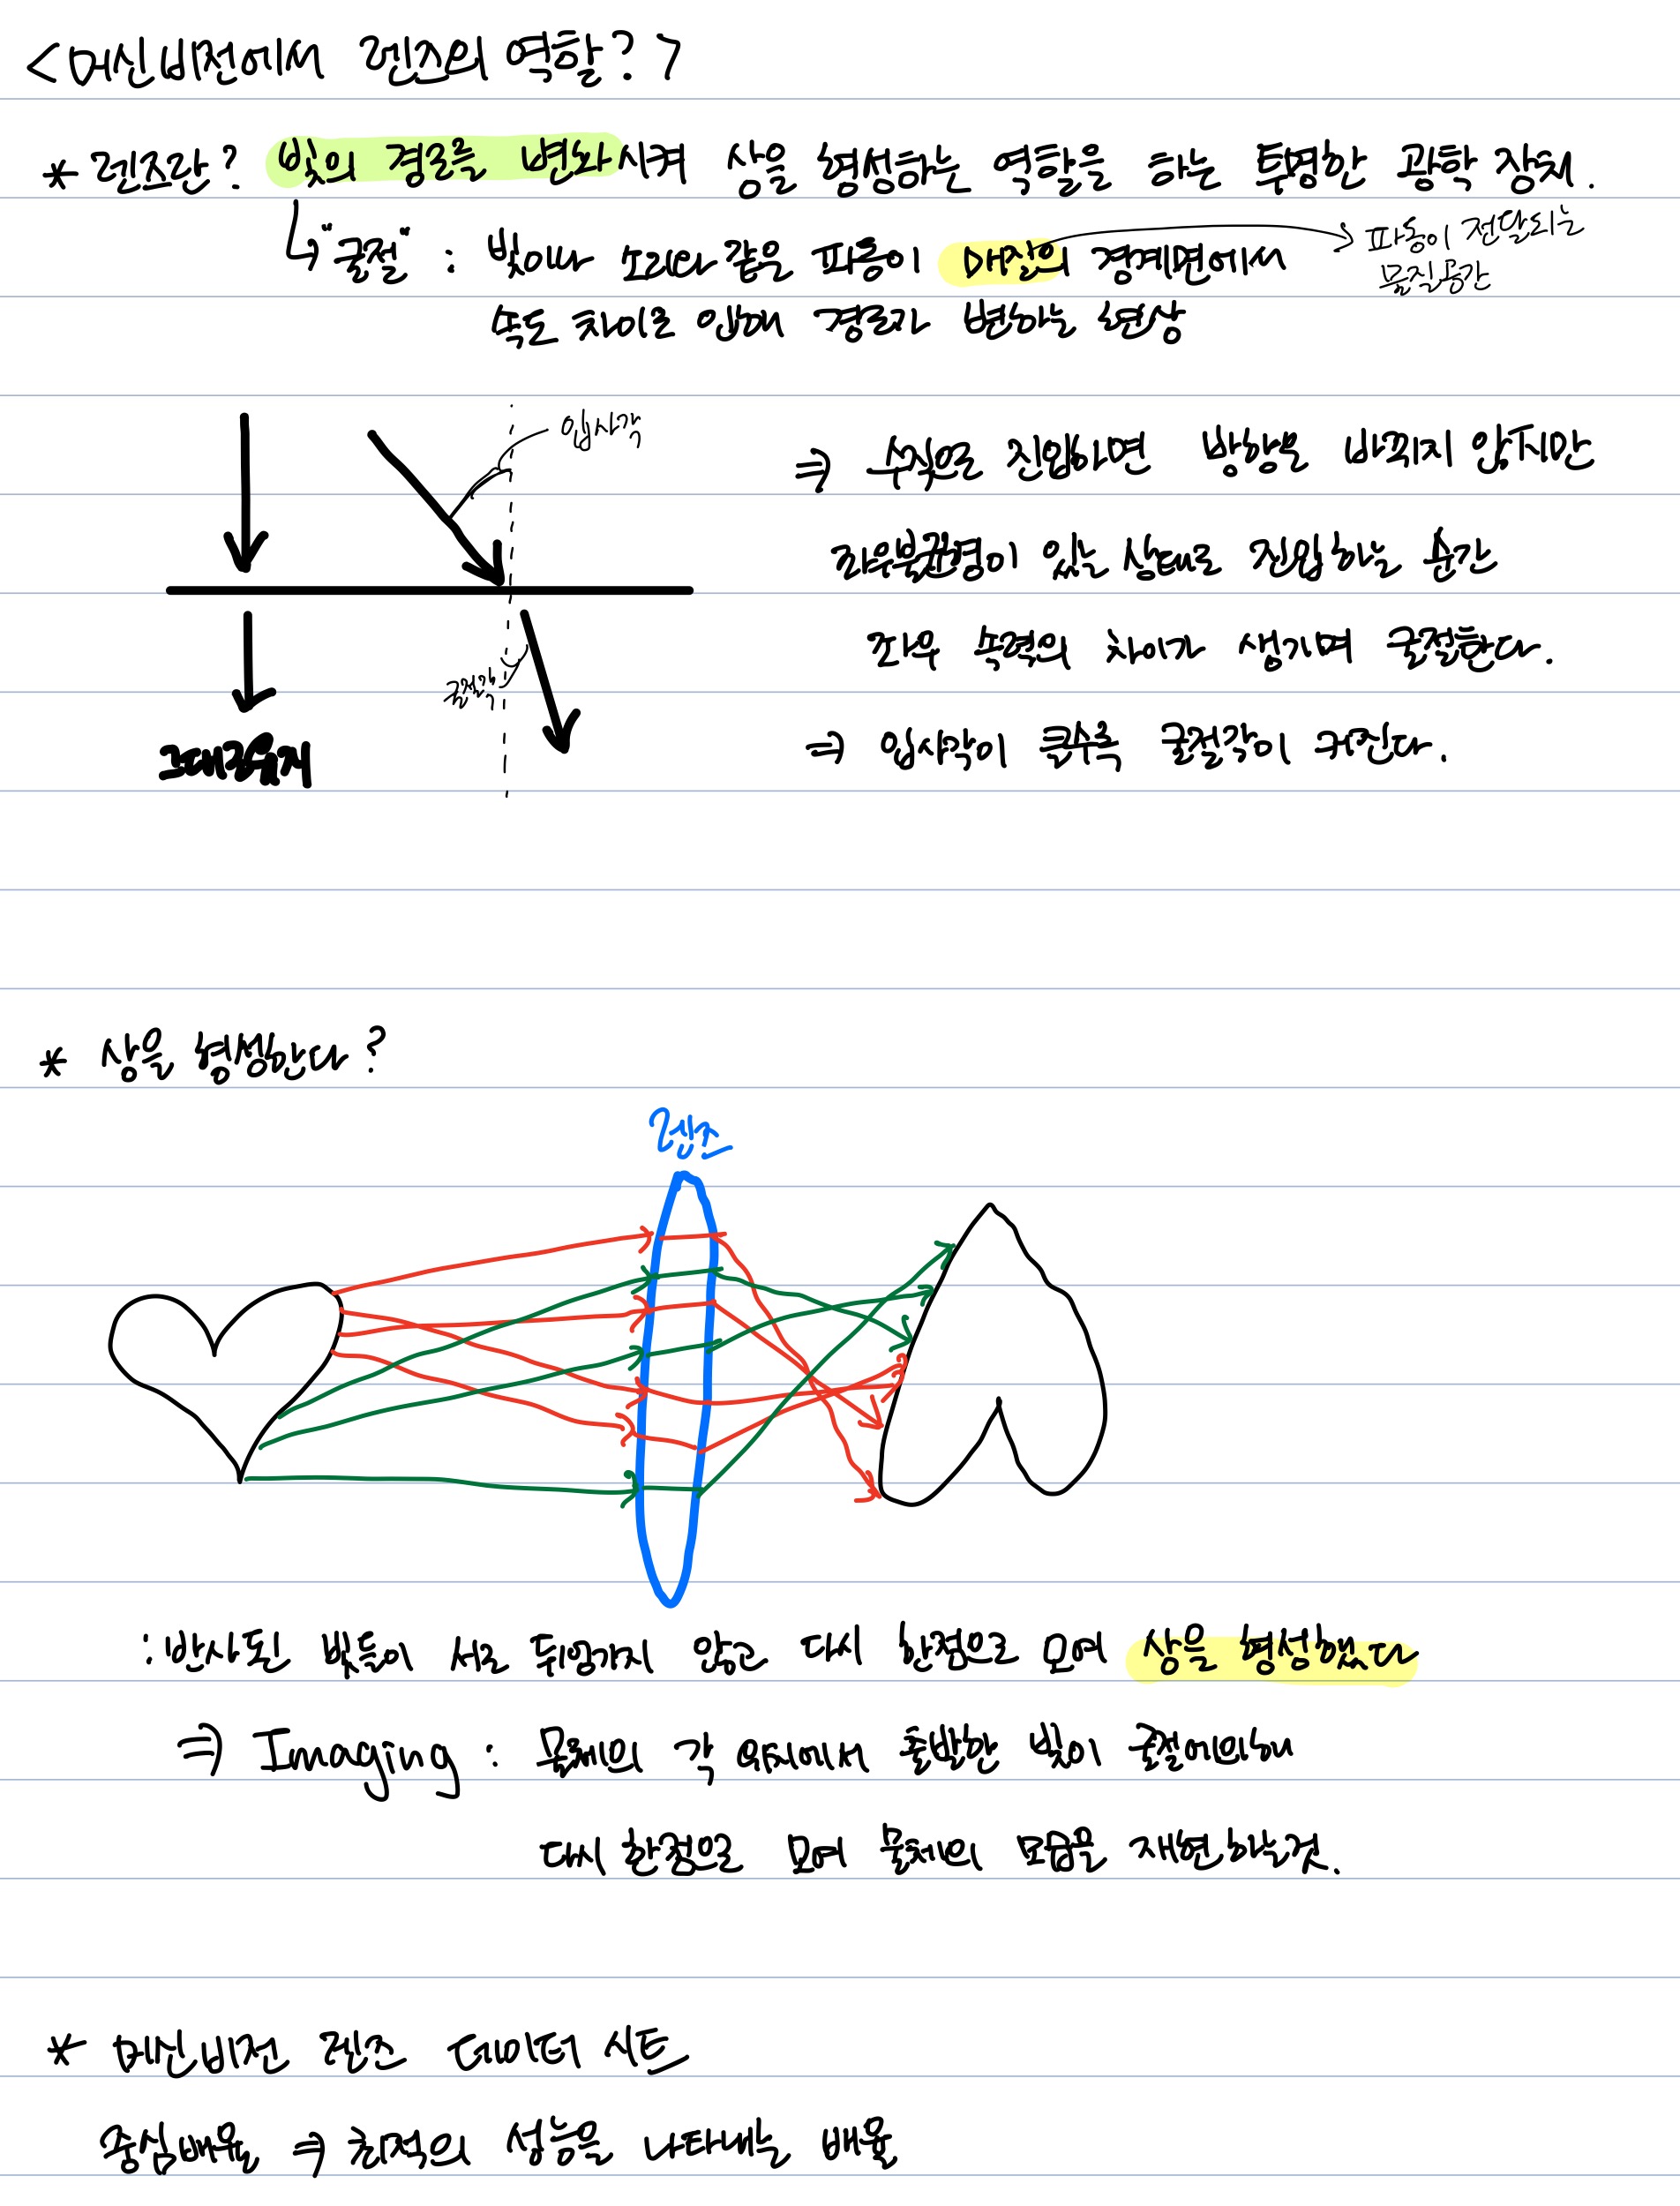 <머신비전에서 렌즈의 역할?>
* 렌즈란? 빛의 경로를 변화시켜 상을 형성하는 역할을 하는 투명한 광학 장치.
↳ "굴절" : 빛이나 소리와 같은 파동이 매질의 경계면에서
속도 차이로 인해 경로가 변하는 현상
→ 파동이 전달되는
물질·공간
입사각
굴절각
그대로 유지
⇒ 수직으로 진입하면 방향을 바꾸지 않지만
좌우불균형이 있는 상태로 진입하는 순간
좌우 속력의 차이가 생기며 굴절한다.
⇒ 입사각이 클수록 굴절각이 커진다.
* 상을 형성한다?
렌즈
: 반사된 빛들이 서로 뒤엉키지 않고 다시 한점으로 모여 상을 형성했다
⇒ Imaging : 물체의 각 위치에서 출발한 빛이 굴절에의해
다시 한점으로 모여 물체의 모습을 재현하는것.
* 머신비전 렌즈 데이터 시트
중심배율 ⇒ 최적의 성능을 나타내는 배율